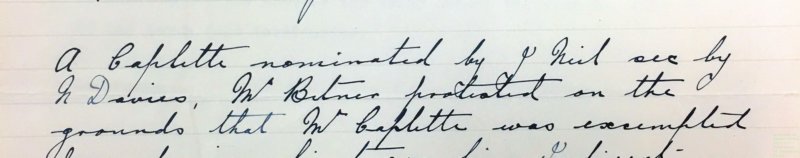 A Caplette nominated by J Neil sec by
N Davies, Mr Bitner protested on the
grounds that Mr Caplette was excempted